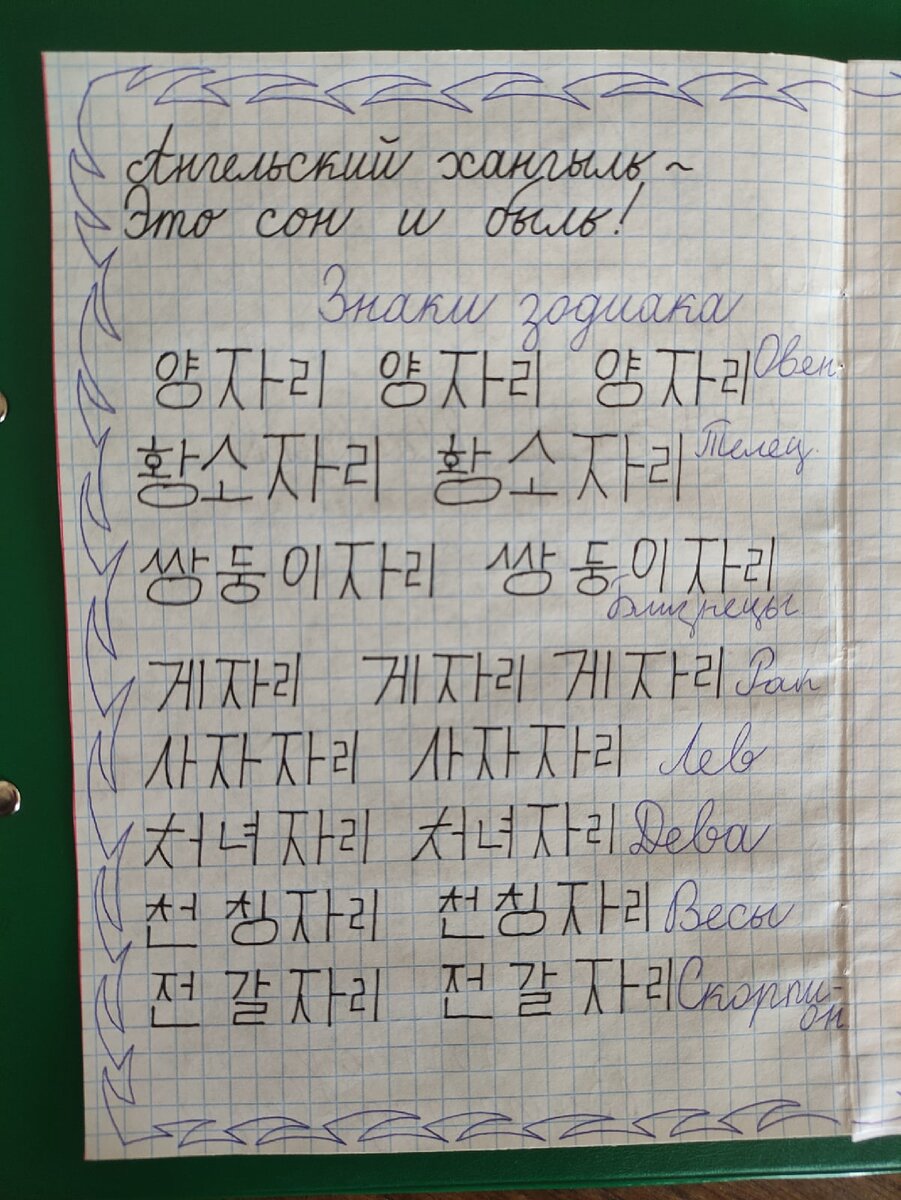 Ангельский хангыль ~
Это сон и быль!
Знаки зодиака
양자리 양자리 양자리 Овен.
황소자리 황소자리 Телец.
쌍둥이자리 쌍둥이자리
Близнецы
게자리 게자리 게자리 Рак
사자자리 사자자리 Лев
처녀자리 처녀자리 Дева
천칭자리 천칭자리 Весы
전갈자리 전갈자리 Скорпи-
он